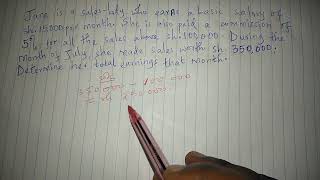 Jane is a sales lady who earns a basic salary of
sh. 15000 per month. She is also paid a commission of
5% for all the sales above sh. 100000. During the
month of July, she made sales worth sh 350,000.
Determine her total earnings that month.
350 000 - 100 000
250 000